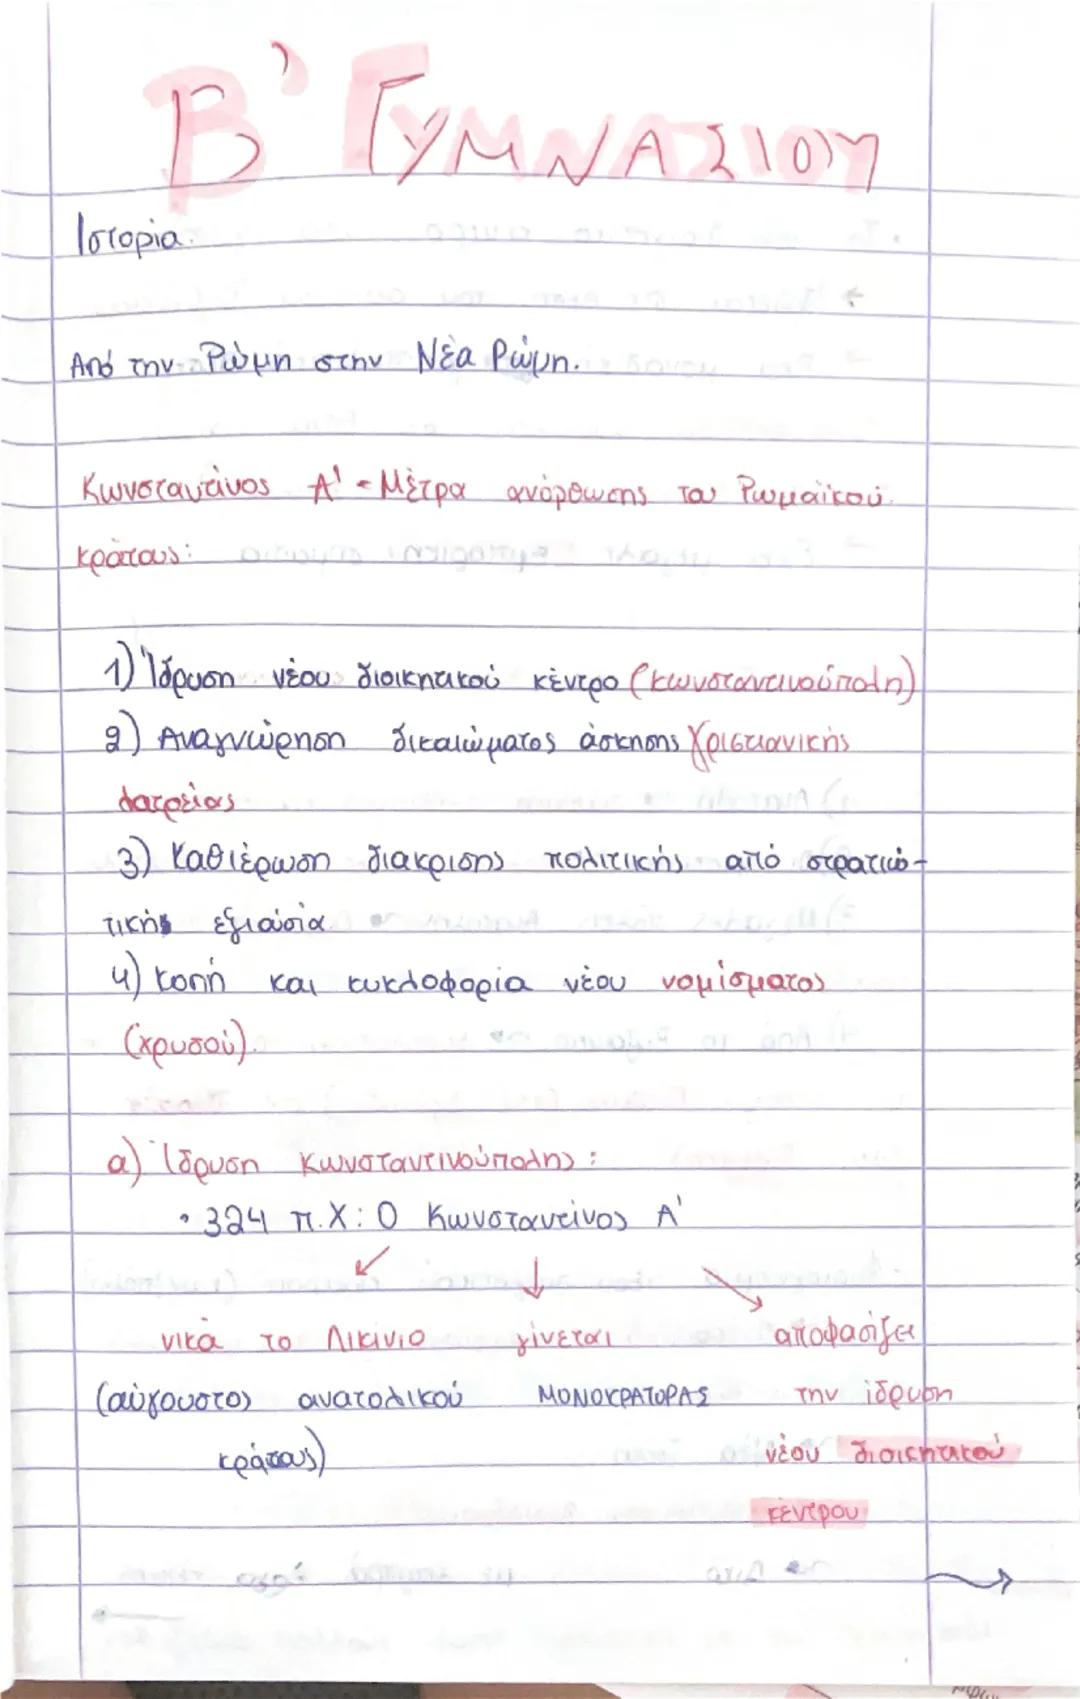 Β' ΓΥΜΝΑΣΙΟΥ
Ιστορία.
Από την Ρώμη στην Νέα Ρώμη.
Κωνσταντίνος Α' - Μέτρα ανόρθωσης του Ρωμαϊκού
κράτους:
1) Ίδρυση νέου διοικητικού κέντρο (Κωνσταντινούπολη)
2) Αναγνώρηση δικαιώματος άσκησης Χριστιανικής
λατρείας
3) Καθιέρωση διακρισης πολιτικής από στρατιω-
τική εξουσία
4) Κοπή και κυκλοφορία νέου νομίσματος
(χρυσού).
α) Ίδρυση Κωνσταντινούπολης:
• 324 π.Χ: Ο Κωνσταντίνος Α'
νικά το Λικίνιο γίνεται αποφασίζει
(αύγουστος ανατολικού ΜΟΝΟΚΡΑΤΟΡΑΣ την ίδρυση
κράτους) νέου διοικητικού
κέντρου